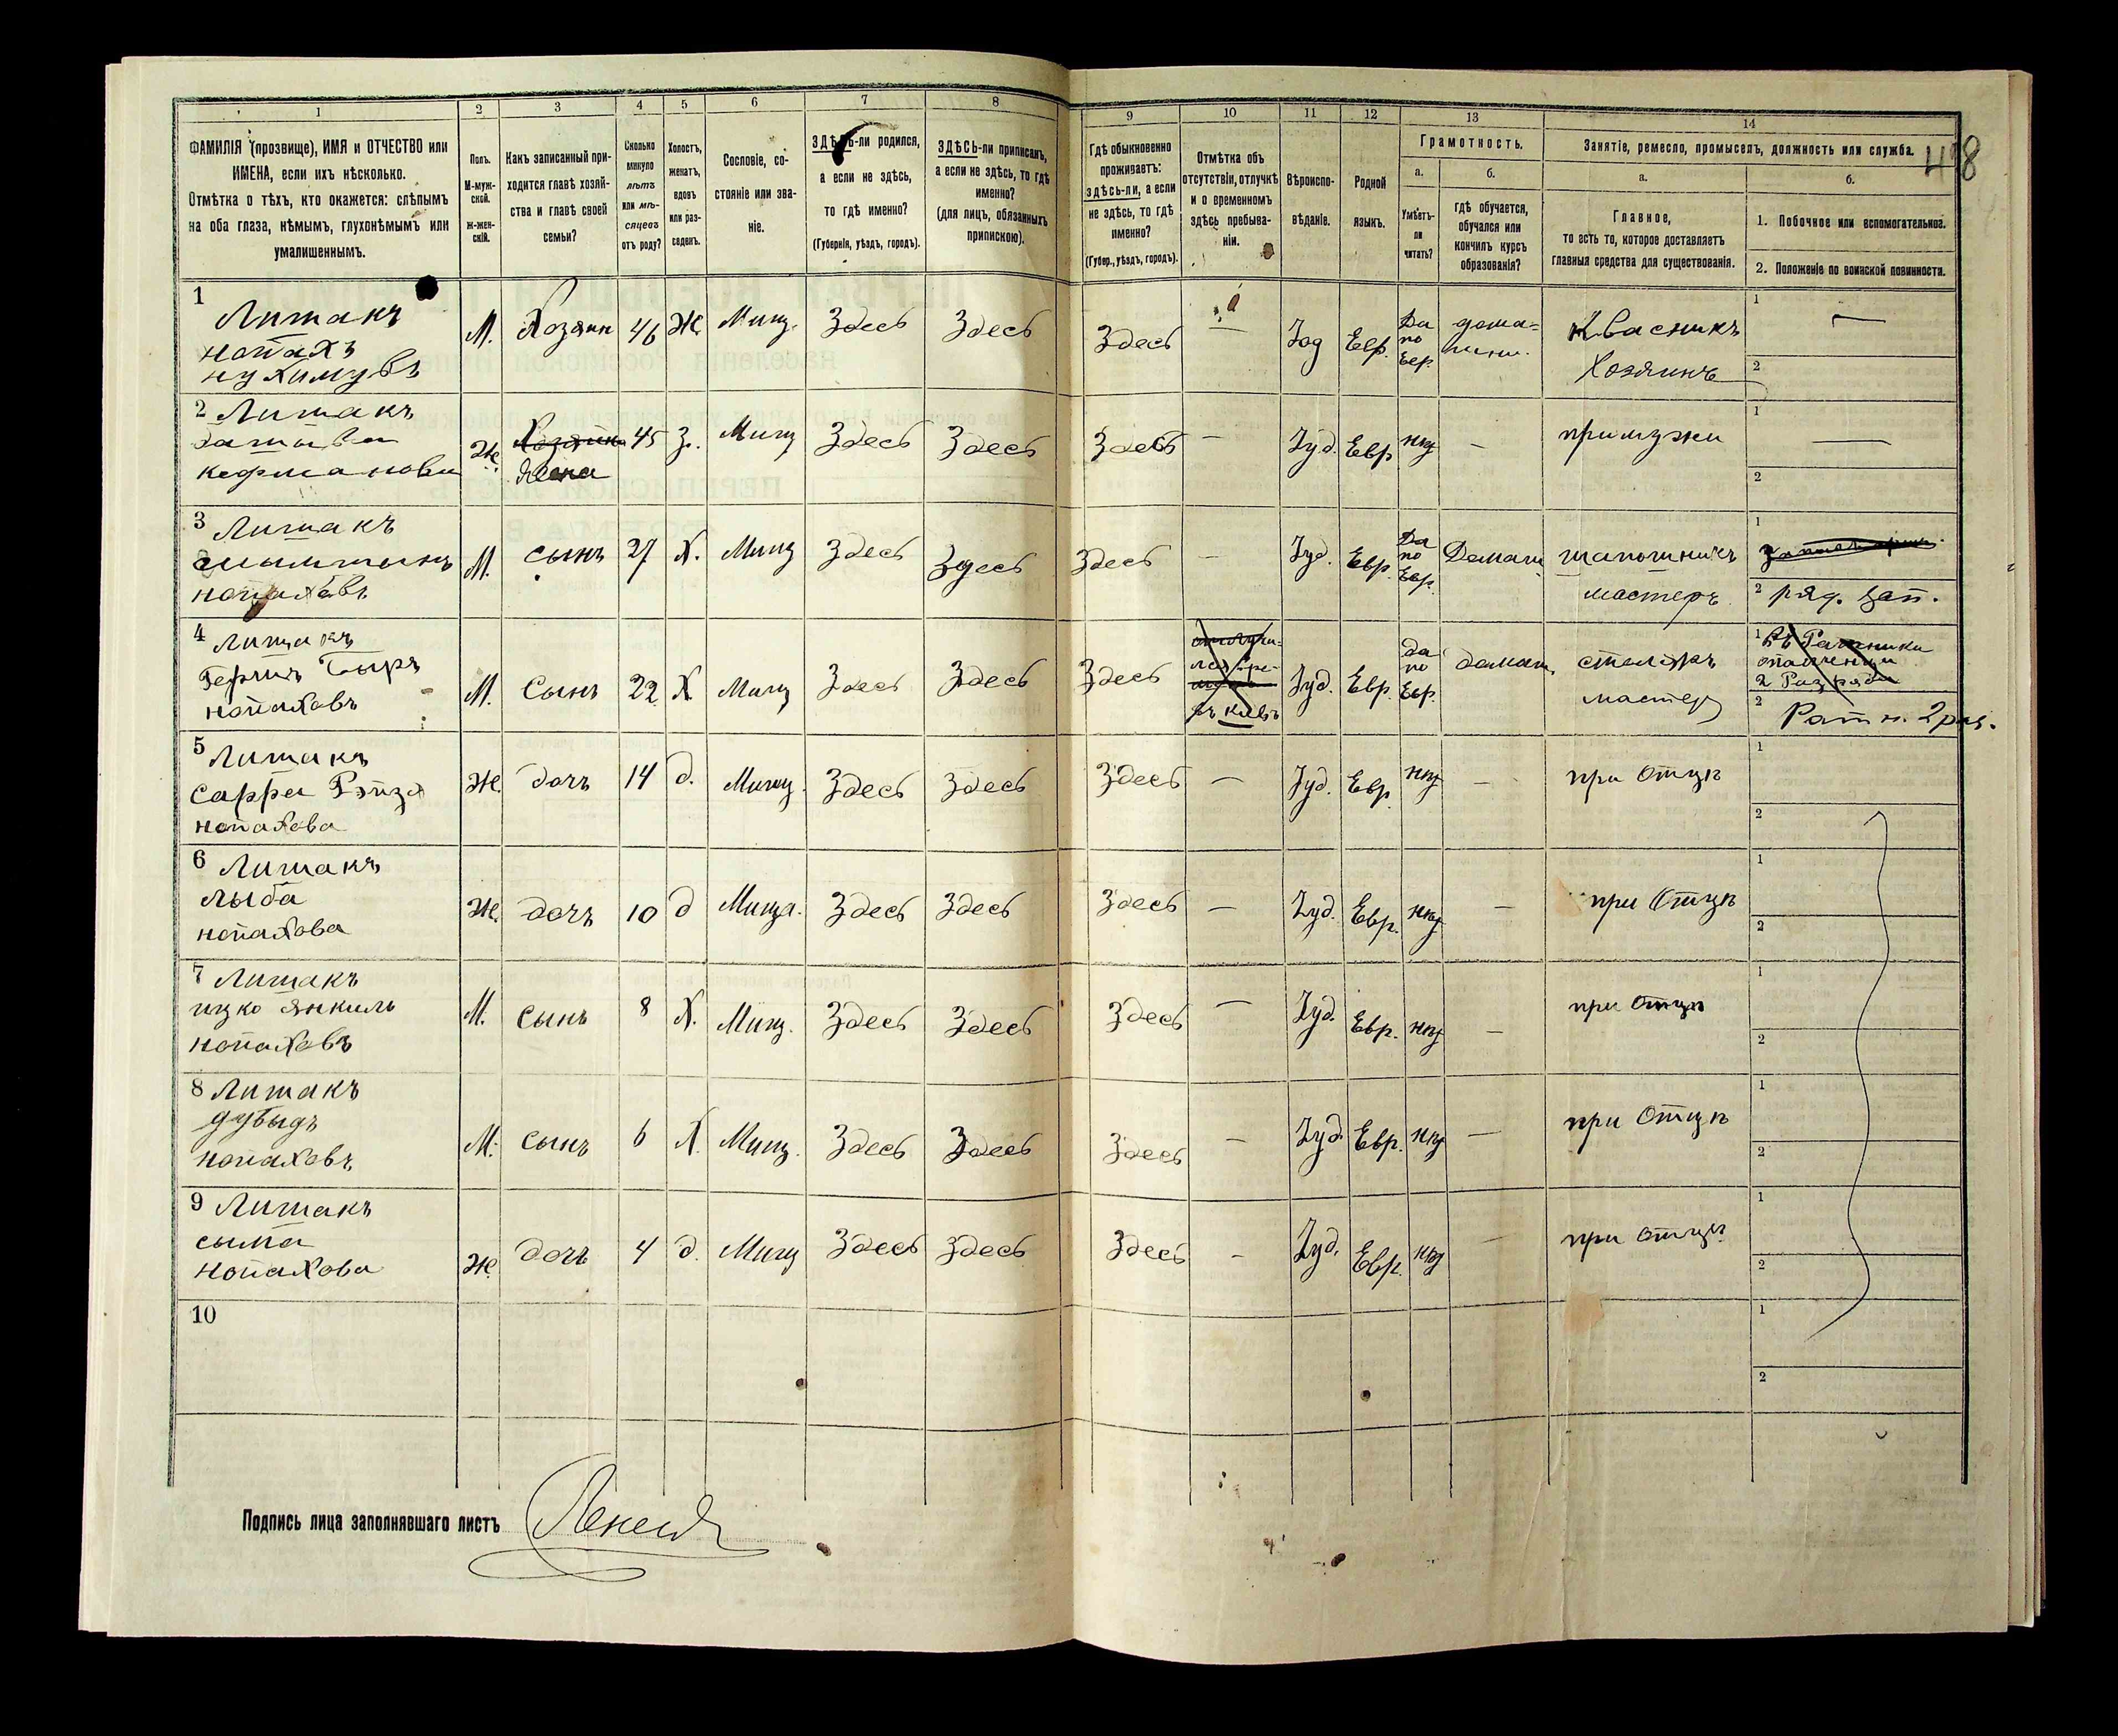 1 2 3 4 5 6 7 8 9 10 11 12 13 14
ФАМИЛІЯ (прозвище), ИМЯ и ОТЧЕСТВО или
ИМЕНА, если ихъ нѣсколько.
Отмѣтка о тѣхъ, кто окажется: слѣпымъ
на оба глаза, нѣмымъ, глухонѣмымъ или
умалишеннымъ.
Полъ.
М-муж-
ской.
Ж-жен-
скій.
Какъ записанный при-
ходится главѣ хозяй-
ства и главѣ своей
семьи?
Сколько
минуло
лѣтъ
или мѣ-
сяцевъ
отъ роду?
Холостъ,
женатъ,
вдовъ
или раз-
веденъ.
Сословіе, со-
стояніе или зва-
ніе.
ЗДѢСЬ-ли родился,
а если не здѣсь,
то гдѣ именно?
(Губернія, уѣздъ, городъ).
ЗДѢСЬ-ли приписанъ,
а если не здѣсь, то гдѣ
именно?
(для лицъ, обязанныхъ
припискою).
Гдѣ обыкновенно
проживаетъ:
здѣсь-ли, а если
не здѣсь, то гдѣ
именно?
(Губер., уѣздъ, городъ).
Отмѣтка объ
отсутствіи, отлучкѣ
и о временномъ
здѣсь пребыва-
ніи.
Вѣроиспо-
вѣданіе.
Родной
языкъ.
Грамотность.
а.
Умѣетъ-
ли
читать?
б.
гдѣ обучается,
обучался или
кончилъ курсъ
образованія?
Занятіе, ремесло, промыселъ, должность или служба.
а.
Главное,
то есть то, которое доставляетъ
главныя средства для существованія.
б.
1. Побочное или вспомогательное.
2. Положеніе по воинской повинности.
1
Литакъ
нопахъ
нухимувъ
М. Хозяин 46 Ж Мищ. Здесь Здесь Здесь — Іюд Евр. Да по Евр. дома= Квасникъ
Хозяинъ
1 —
2
2 Литакъ
Ж Хозяйка 45 З. Мищ Здесь Здесь Здесь — Іуд. Евр нѣт — при мужи
жена
1 —
2
3 Литакъ
нопаховъ
М. сынъ 27 Х. Мищ Здесь Здесь Здесь — Іуд. Евр. Да по Евр. Домаш шапошникъ
мастеръ
1
2 ряд. зап.
4 Литакъ
нопаховъ
М. Сынъ 22 Х Мищ Здесь Здесь Здесь Іуд. Евр. да по Евр. домаш столяръ
мастер
1 Въ Ратники
ополченци
2 Разряда
2 Ратн. 2 раз.
5 Литакъ
Сарра Рэйза
нопахова
Ж. дочь 14 д. Мищ. Здесь Здесь Здесь — Іуд. Евр. нѣт — при Отцѣ
1
2
6 Литакъ
лыба
нопахова
Ж. дочь 10 д Мища. Здесь Здесь Здесь — Іуд. Евр. нѣт — при Отцѣ
1
2
7 Литакъ
ицко Янкиль
нопаховъ
М. Сынъ 8 Х. Мищ. Здесь Здесь Здесь — Іуд. Евр. нѣт — при Отцѣ
1
2
8 Литакъ
дувыдъ
нопаховъ
М. сынъ 6 Х. Мищ. Здесь Здесь Здесь — Іуд. Евр. нѣт — при Отцѣ
1
2
9 Литакъ
сыма
нопахова
Ж. дочь 4 д. Мищ Здесь Здесь Здесь - Іуд. Евр. нѣт — при отцѣ
1
2
10
1
2
Подпись лица заполнявшаго листъ